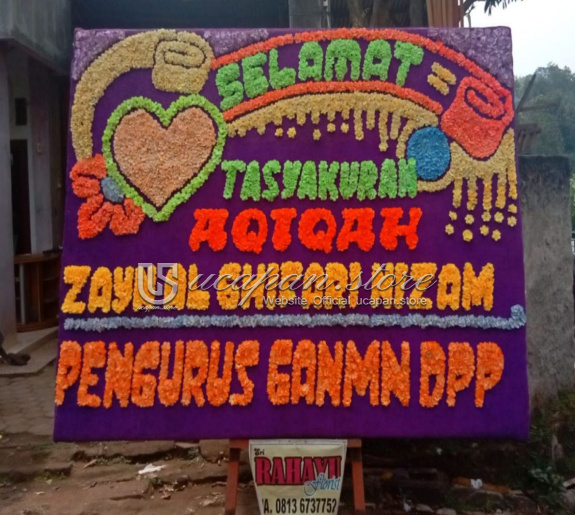 SELAMAT
TASYAKURAN
AQIQAH
PENGURUS GANMN DPP
US ucapan.store
Website Official ucapan.store
Sri
RAHAYU
Florist
'A. 0813 6737752